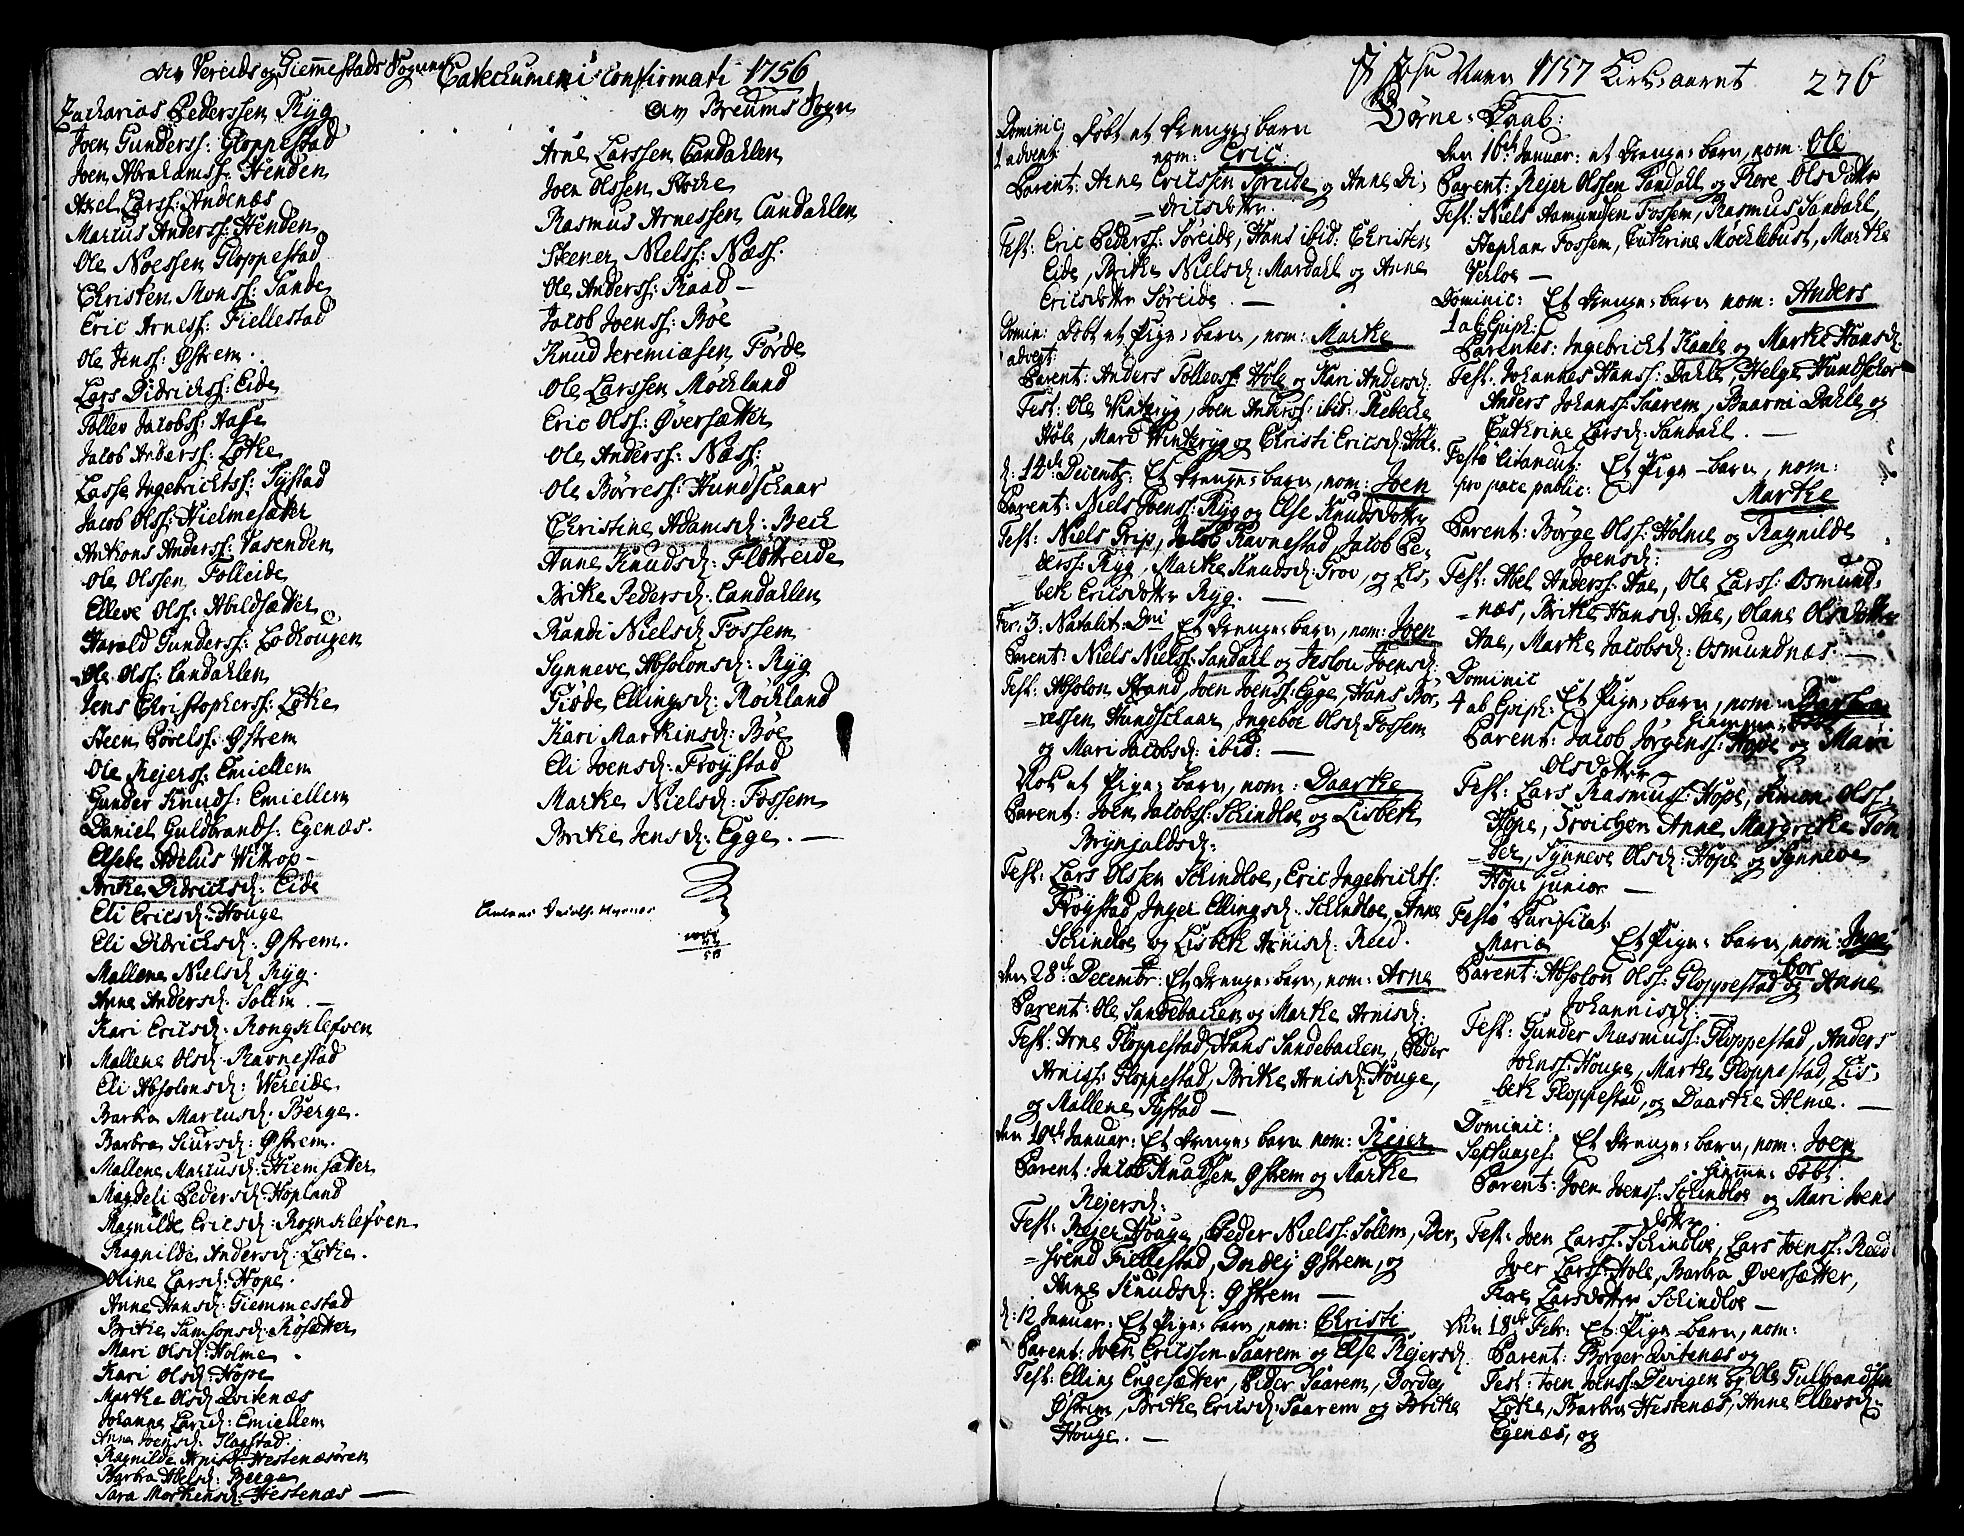 Catechumeni confirmati 1756
av Vereids og Giemestads Sogner
Zacharias Pederssen Ryg
Joen Gunderss: Gloppestad
Joen Abrahamss: Henden
Axel Larss: Andenæs
Marcus Anderss: Henden
Ole Noessen Gloppestad
Christen Monss: Sande
Eric Arness: Fiellestad
Ole Jenss: Østrem.
Lars Didrichss: Eide
Tollev Jacobss: Aase
Jacob Anderss: Løtke
Lasse Ingebrichtss: Systad
Jacob Olss: Hielmesæter
Anthons Anderss: Vasenden
Ole Olssen Folleide
Elleve Olss: Abildsætter
Harald Gunderss: Lodkougen
Ole Olss: Candahlen
Jens Christopherss: Løtke
Steen Børelss: Østrem
Ole Rejerss: Emiellem
Gunder Knuds: Emiellem
Daniel Guldbrands: Egenæs.
Elsebe Adelus Wittrop-
Anke Didricsd: Eide
Eli Ericsd: Houge
Eli Didricksd: Østrem.
Mallene Nielsd: Ryg.
Anne Andersd: Solem. —
Kari Ericsd: Rongkløfven
Mallene Olsd: Ravnestad
Eli Absolonsd: Wereide
Barbra Marcusd: Berge.
Barbra Siursd: Østrem.
Mallene Marcusd: Hiemsæter
Magdeli Pedersd: Hopland
Ragnilde Ericsd: Rognkløfven
Ragnilde Andersd: Løtke.
Oline Larsd: Hope.
Anne Hansd: Giemmestad
Britke Samsonsd: Rosætter
Mari Olsd: Holme.
Kari Olsd: Hope
Martke Olsd: Qvitenæs
Johanne Larsd: Emiellem
Anne Joensd: Flagstad
Ragnilde Arnisd: Hestenæsøren
Barbra Abelsd: Berge
Sara Mortensd: Hestenæs —
av Breums Sogn
Arne Larssen Candahlen
Joen Olssen Flocke
Rasmus Arnessen Candahlen
Steener Nielss: Næss.
Ole Anderss: Raad —
Jacob Joenss: Bøe
Knud Jeremiæsen Førde
Ole Larssen Mòckland
Eric Olss: Øversætter
Ole Anderss: Næss:
Ole Børress: Hundschaar
Christine Adamsd: Beck
Anne Knudsd: Flòttreide
Britke Pedersd: Candahlen
Randi Nielsd: Fossem
Synneve Absolonsd: Ryg
Giøde Ellingsd: Røckland
Kari Martinsd: Bøe
Eli Joensd: Frøystad
Martke Nielsd: Fossem
Britke Jensd: Egge. —
58
J Jesu Navn 1757 Kirke aaret
276
Børne-Daab:
Dominic
1 advent:
Døbt et Drenge-barn
nom: Eric:
Parent: Arne Ericssen Søreide og Anne Di-
=dricsdotter.
Test: Eric Pederss: Søreide, Hans ibid: Christen
Eide, Britke Nielsd: Mardahl og Anne
Ericsdotter Søreide. —
Domin: Døbt et Pige-barn, nom: Martke
advent:
Parent: Anders Tollevss: Hole og Kari Andersd:
Test: Ole Vinteryg, Joen Anderss: ibid: Rebecke
Hole, Mari Vinteryg og Christi Ericsd: Hole.
d: 14de Decembr: Et Drenge-barn, nom: Joen
Parent: Niels Joenss: Ryg og Else Knudsdotter
Test: Niels Grip, Jacob Ravnestad Jacob Pe-
derss: Ryg, Martke Knudsd: Troe, og Lis-
bek Ericsdotter Ryg. —
Fer: 3. Natalit: Dni Et Drenge-barn, nom: Joen
Parent: Niels Nielss: Sandahl og Jeslou Joensd:
Test: Absolon Strand, Joen Joenss: Egge, Hans Bòr-
=ressen Hundschaar, Ingeboe Olsd: Fossem
og Mari Jacobsd: ibid: —
Nok et Pige-barn, nom: Daartke
Parent: Joen Jacobss: Schindloe og Lisbetk
Brynjaldsd:
Test: Lars Olssen Schindloe, Eric Ingebrichts:
Frøystad, Inger Ellingsd: Schindloe, Anne
Schindloe og Lisbetk Arnisd: Reed.
den 28de Decembr: Et Drenge-barn, nom: Arne
Parent: Ole Sandebacken og Martke Arnisd:
Test: Arne Gloppestad, Hans Sandebacken, Peder
Arniss: Gloppestad, Britke Arnisd: Houge,
og Mallene Systad —
den 10de Januar: Et Drenge-barn nom: Rejer
Parent: Jacob Knudssen Østrem og Martke
Rejersd:
Test: Rejer Houge, Peder Nielss: Solem, Ber-
=svend Fiellestad, Dordej Østrem, og
Anne Knudsd: Østrem —
d: 12 Januar: Et Pige-barn, nom: Christi
Parent: Joen Ericssen Saarem og Else Rejersd.
Test: Elling Engesætter, Peder Saarem, Dordej
Østrem, Britke Ericsd: Saarem og Britke
Houge. —
Den 16de Januar: et Drenge-barn, nom: Ole
Parent: Rejer Olssen Sandahl og Rore Olsdotter
Test: Niels Aamundsen Fossem, Rasmus Sandahl,
Stephan Fossem, Cathrine Mocklebust, Martke
Verloe —
Dominic: Et Drenge-barn nom: Anders
1 ab Epiph:
Parentes: Ingebricht Kaale og Martke Hansd:
Test: Johannes Hanss: Dahle, Helge Hundschor
Anders Johanss: Saarem, Baarni Dahle og
Cathrine Larsd: Sandahl. —
Festo Citandct: Et Pige-barn, nom:
pro pace public: Martke
Parent: Børge Olss: Holme og Ragnilde
Joensd:
Test: Abel Anderss: Aae, Ole Larss: Osmund-
=næs, Britke Hansd: Aae, Olane Olsdotter
Aae, Martke Jacobsd: Osmundnæs. —
Dominic
4 ab Epiph: Et Pige-barn, nom:
Parent: Jacob Jørgenss: Hope og Mari
Olsdotter
Test: Lars Rasmuss: Hope, Simon Olss:
Hope, Froichen Anne Margretke Ton
=der, Synneve Olsd: Hope og Synneve
Hope junior —
Festo Purificat:
Mariæ Et Pige-barn, nom: Inge
bor
Parent: Absolon Olss: Gloppestad og Anne
Johannisd:
Test: Gunder Rasmuss: Gloppestad, Anders
Joenss: Houge, Martke Gloppestad, Lis-
=betk Gloppestad, og Daartke Alme. —
Dominic:
Septuages: Et Drenge-barn, nom: Joen
hiemme-døbt.
Parent: Joen Joenss: Schindloe og Mari Joens
dotter
Test: Joen Larss: Schindloe, Lars Joenss: Reed
Jver Larss: Hole, Barbra Øversætter,
Rore Larsdotter Schindloe —
Den 18de Febr: Et Pige-barn, nom:
Parent: Børger Qvitenæs og
Test: Joen Joenss: Devigen og Ole Gulbrandsen
Løtke, Barbra Hestenæs, Anne Ellevsd:
Egenæs, og